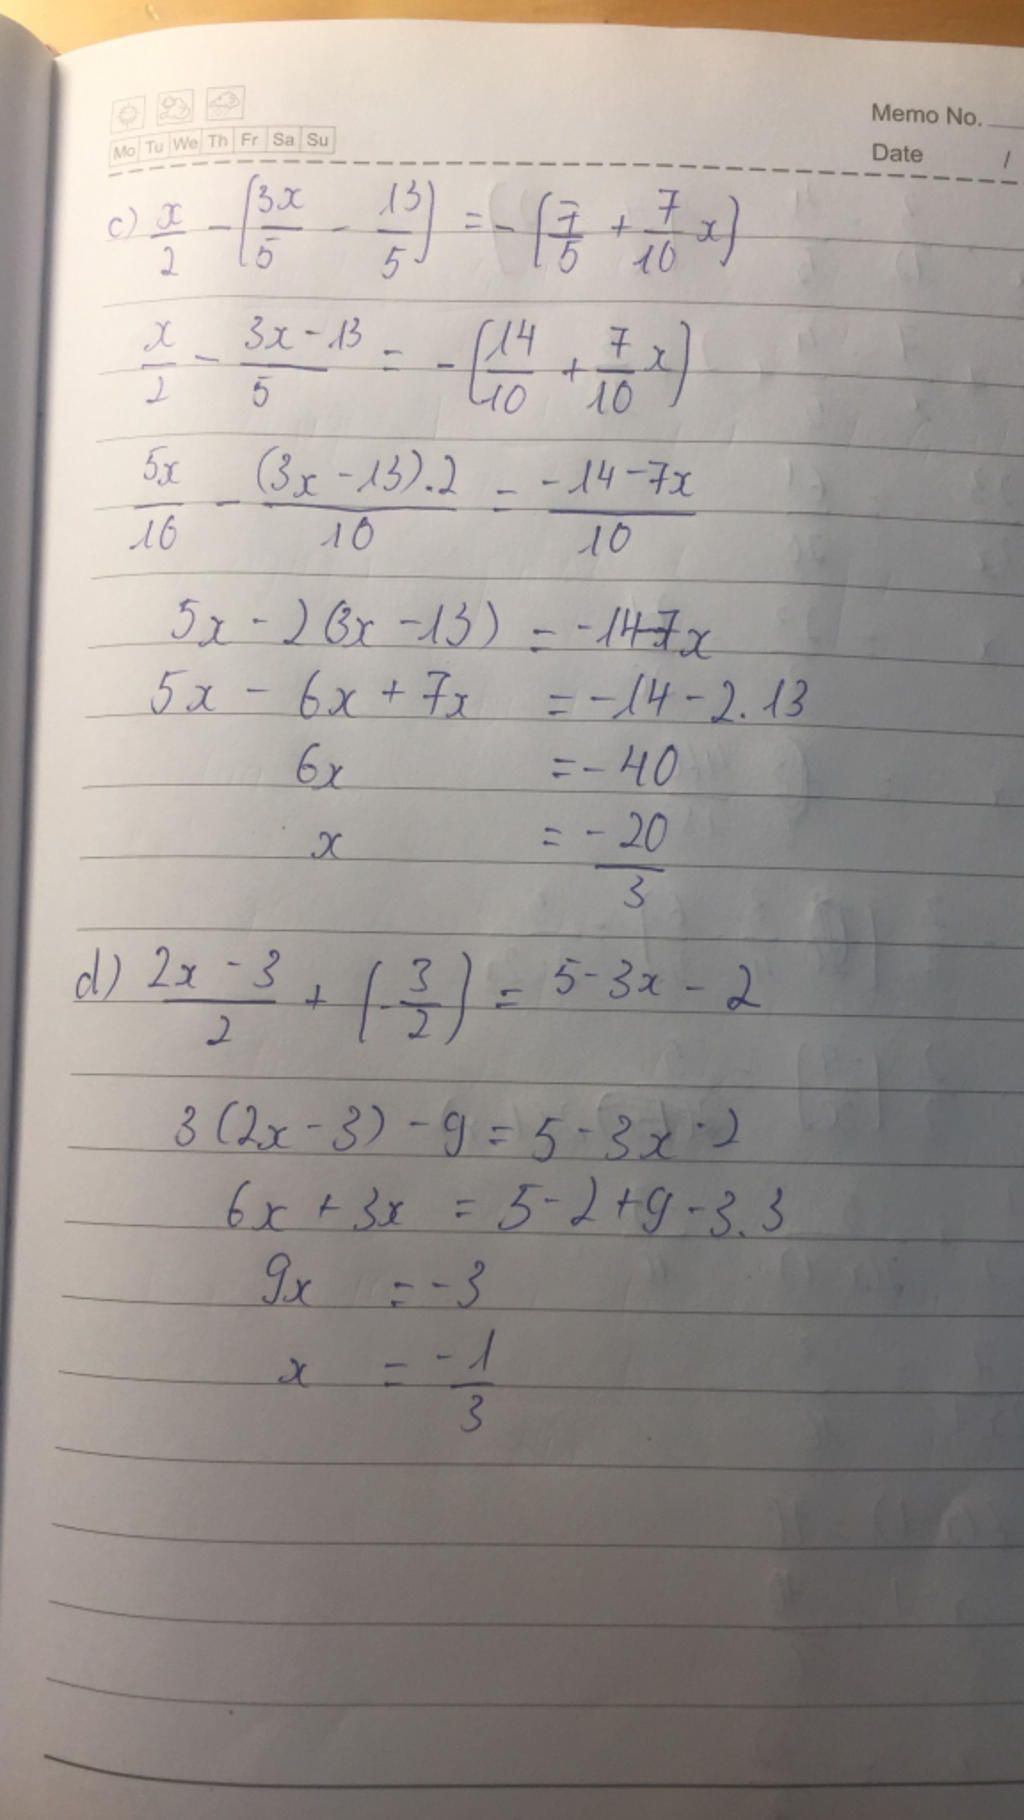 Memo No.
Mo Tu We Th Fr Sa Su
Date /
c) x/2 - (3x/5 - 13/5) = - (7/5 + 7/10 x)
x/2 - (3x - 13)/5 = - (14/10 + 7/10 x)
5x/10 - (3x - 13).2/10 = (-14 - 7x)/10
5x - 2(3x - 13) = -14-7x
5x - 6x + 7x = -14 - 2.13
6x = -40
x = -20/3
d) (2x - 3)/2 + (-3/2) = 5 - 3x - 2
3(2x - 3) - 9 = 5 - 3x - 2
6x + 3x = 5 - 2 + 9 - 3.3
9x = -3
x = -1/3